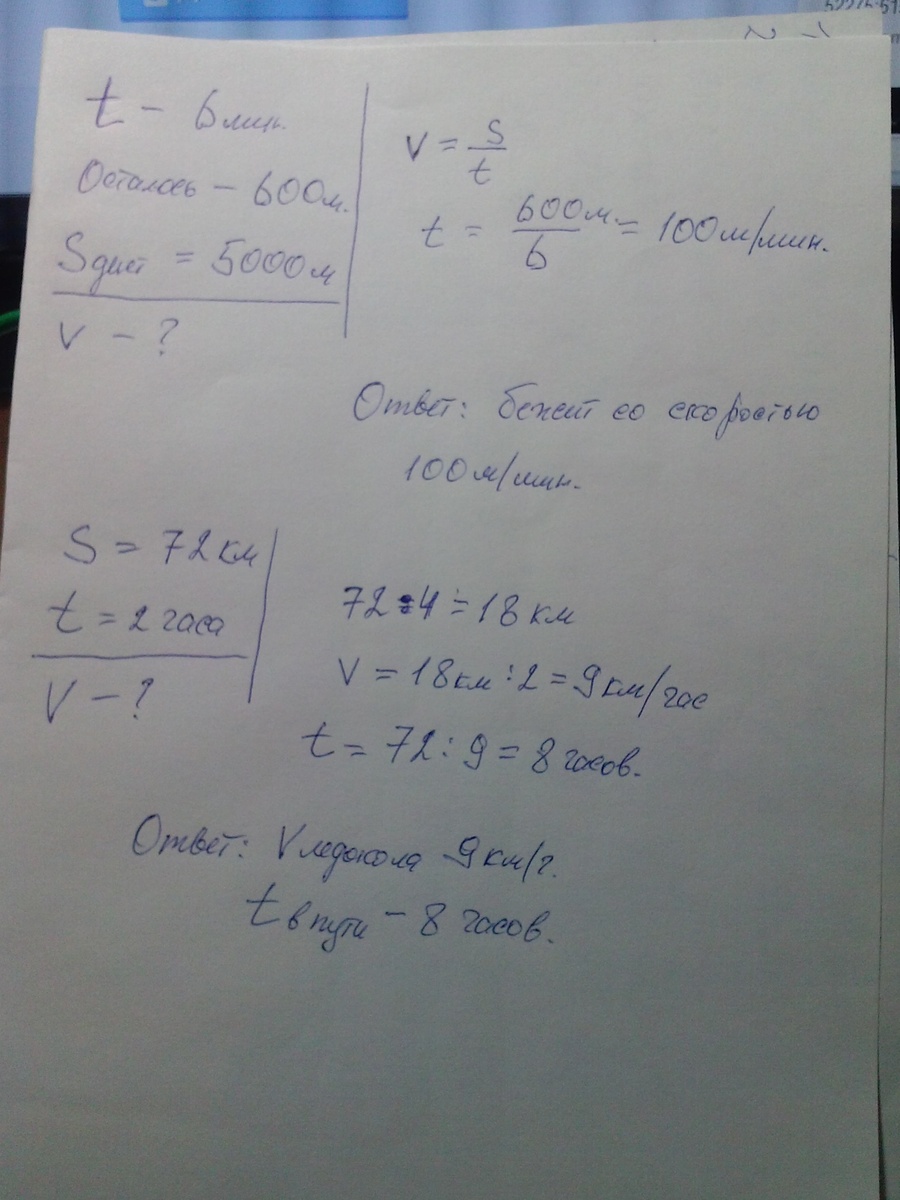 t - 6 мин.
Осталось - 600м.
Sдист = 5000м
V - ?
V = S/t
t = 600м./6 = 100м/мин.
Ответ: бежит со скоростью
100м/мин.
S = 72 км
t = 2 часа
V - ?
72:4 = 18 км
V = 18км:2 = 9км/час
t = 72:9 = 8 часов.
Ответ: Vледокола 9км/ч.
t в пути - 8 часов.